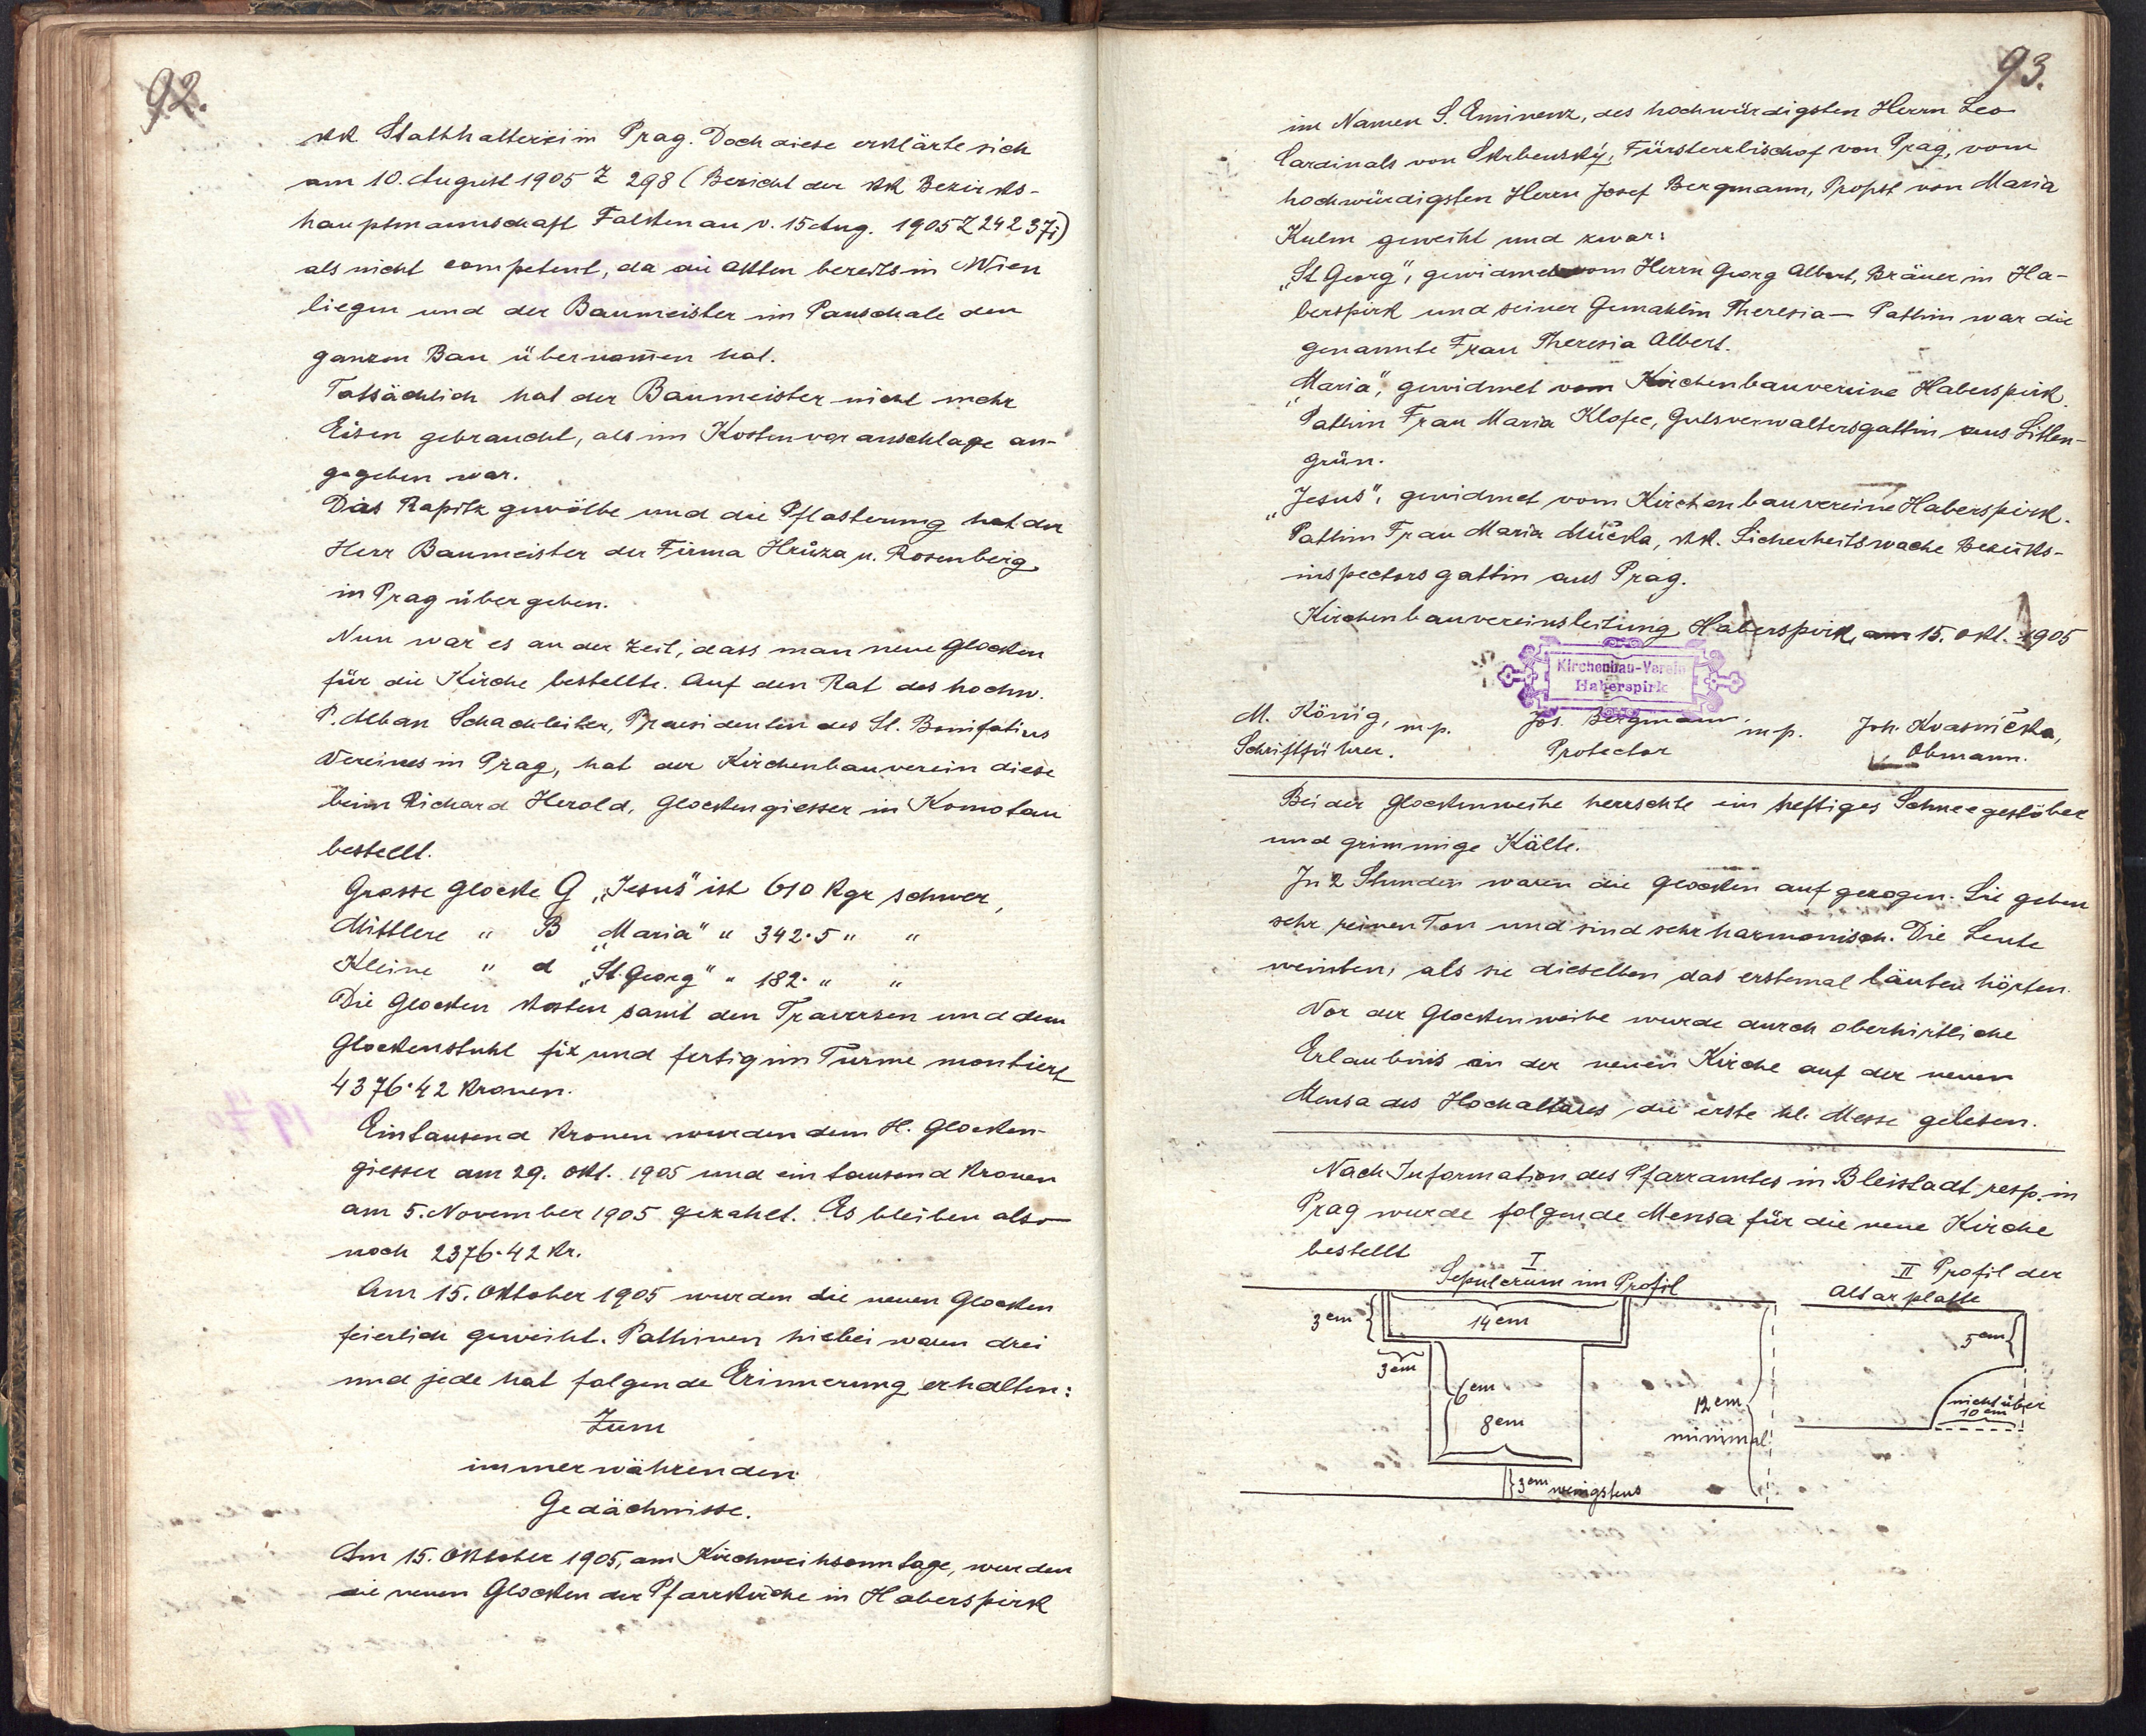 92.
kk Statthalterei in Prag. Doch diese erklärte sich
am 10. August 1905 Z 298 (Bericht der kk Bezirks-
hauptmannschaft Falkenau v. 15 Aug. 1905 Z 24237i)
als nicht competent, da die Akten bereits in Wien
liegen und der Baumeister im Pauschale den
ganzen Bau übernom̄en hat.
Tatsächlich hat der Baumeister nicht mehr
Eisen gebraucht, als im Kostenvoranschlage an-
gegeben war.
Das Rapitz gewölbe und die Pflasterung hat der
Herr Baumeister der Firma Hrůza u. Rosenberg
in Prag übergeben.
Nun war es an der Zeit, dass man neue Glocken
für die Kirche bestellte. Auf den Rat des hochw.
P. Alban Schachleiter, Praesidenten des St. Bonifatius
Vereines in Prag, hat der Kirchenbauverein diese
beim Richard Herold, Glockengiesser in Komotau
bestellt.
Grosse Glocke G „Jesus" ist 610 Kgr schwer,
Mittlere " B „Maria" " 342·5 " "
Kleine " d „St. Georg" " 182· " "
Die Glocken kosten samt den Traversen und dem
Glockenstuhl fix und fertig im Turme montiert
4376·42 Kronen.
Eintausend Kronen wurden dem H. Glocken-
giesser am 29. Okt. 1905 und ein tausend Kronen
am 5. November 1905 gezahlt. Es bleiben also
noch 2376·42 Kr.
Am 15. Oktober 1905 wurden die neuen Glocken
feierlich geweiht. Pathinen hiebei waren drei
und jede hat folgende Erinnerung erhalten:
Zum
immerwährenden
Gedächnisse.
Am 15. Oktober 1905, am Kirchweihsonntage, wurden
die neuen Glocken der Pfarrkirche in Haberspirk
93.
im Namen S. Eminenz, des hochwürdigsten Herrn Leo
Cardinals von Skrbenský, Fürsterzbischof von Prag, vom
hochwürdigsten Herrn Josef Bergmann, Propst von Maria
Kulm geweiht und zwar:
„St Georg", gewidmet vom Herrn Georg Albert, Bräuer in Ha-
berspirk und seiner Gemahlin Theresia – Pathin war die
genannte Frau Theresia Albert.
„Maria", gewidmet vom Kirchenbauvereine Haberspirk.
Pathin Frau Maria Klofec, Gutsverwaltersgattin aus Litten-
grün.
„Jesus", gewidmet vom Kirchenbauvereine Haberspirk.
Pathin Frau Maria Mučka, kk. Sicherheitswache Bezirks-
inspectorsgattin aus Prag.
Kirchenbauvereinsleitung Haberspirk, am 15. Okt. 1905
Kirchenbau-Verein
Haberspirk
M. König, mp. Jos. Bergmann, mp. Joh. Kvasnička,
Schriftführer. Protector Obmann.
Bei der Glockenweihe herrschte ein heftiges Schneegestöber
und grimmige Kälte.
In 2 Stunden waren die Glocken aufgezogen. Sie geben
sehr reinen Ton und sind sehr harmonisch. Die Leute
weinten, als sie dieselben das erstemal läuten hörten.
Vor der Glockenweihe wurde durch oberhirtliche
Erlaubnis in der neuen Kirche auf der neuen
Mensa des Hochaltares die erste hl. Messe gelesen.
Nach Information des Pfarramtes in Bleistadt, resp. in
Prag wurde folgende Mensa für die neue Kirche
bestellt
I
Sepulcrum im Profil
II Profil der
Altarplatte
3 cm
14 cm
5 cm
3 cm
6 cm
8 cm
12 cm
minimal
nicht über
10 cm
3 cm wenigstens